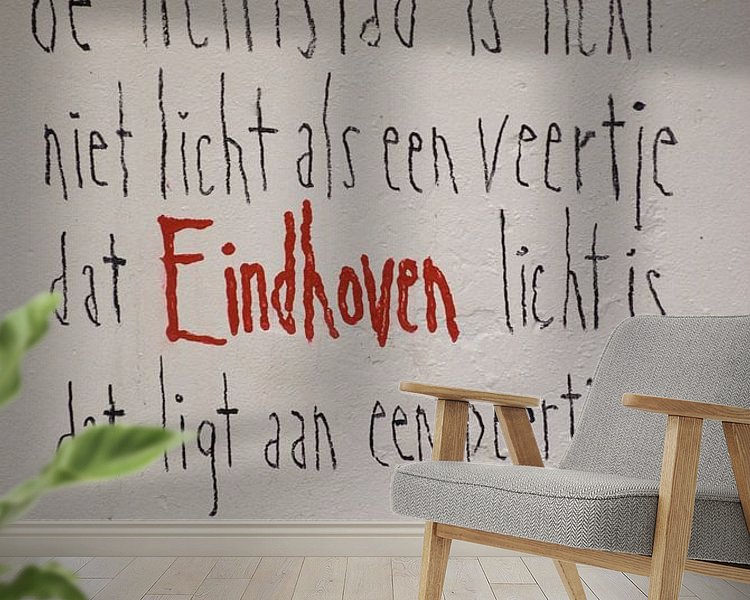 de lichtstad is licht
niet licht als een veertje
dat Eindhoven licht is
dat ligt aan een